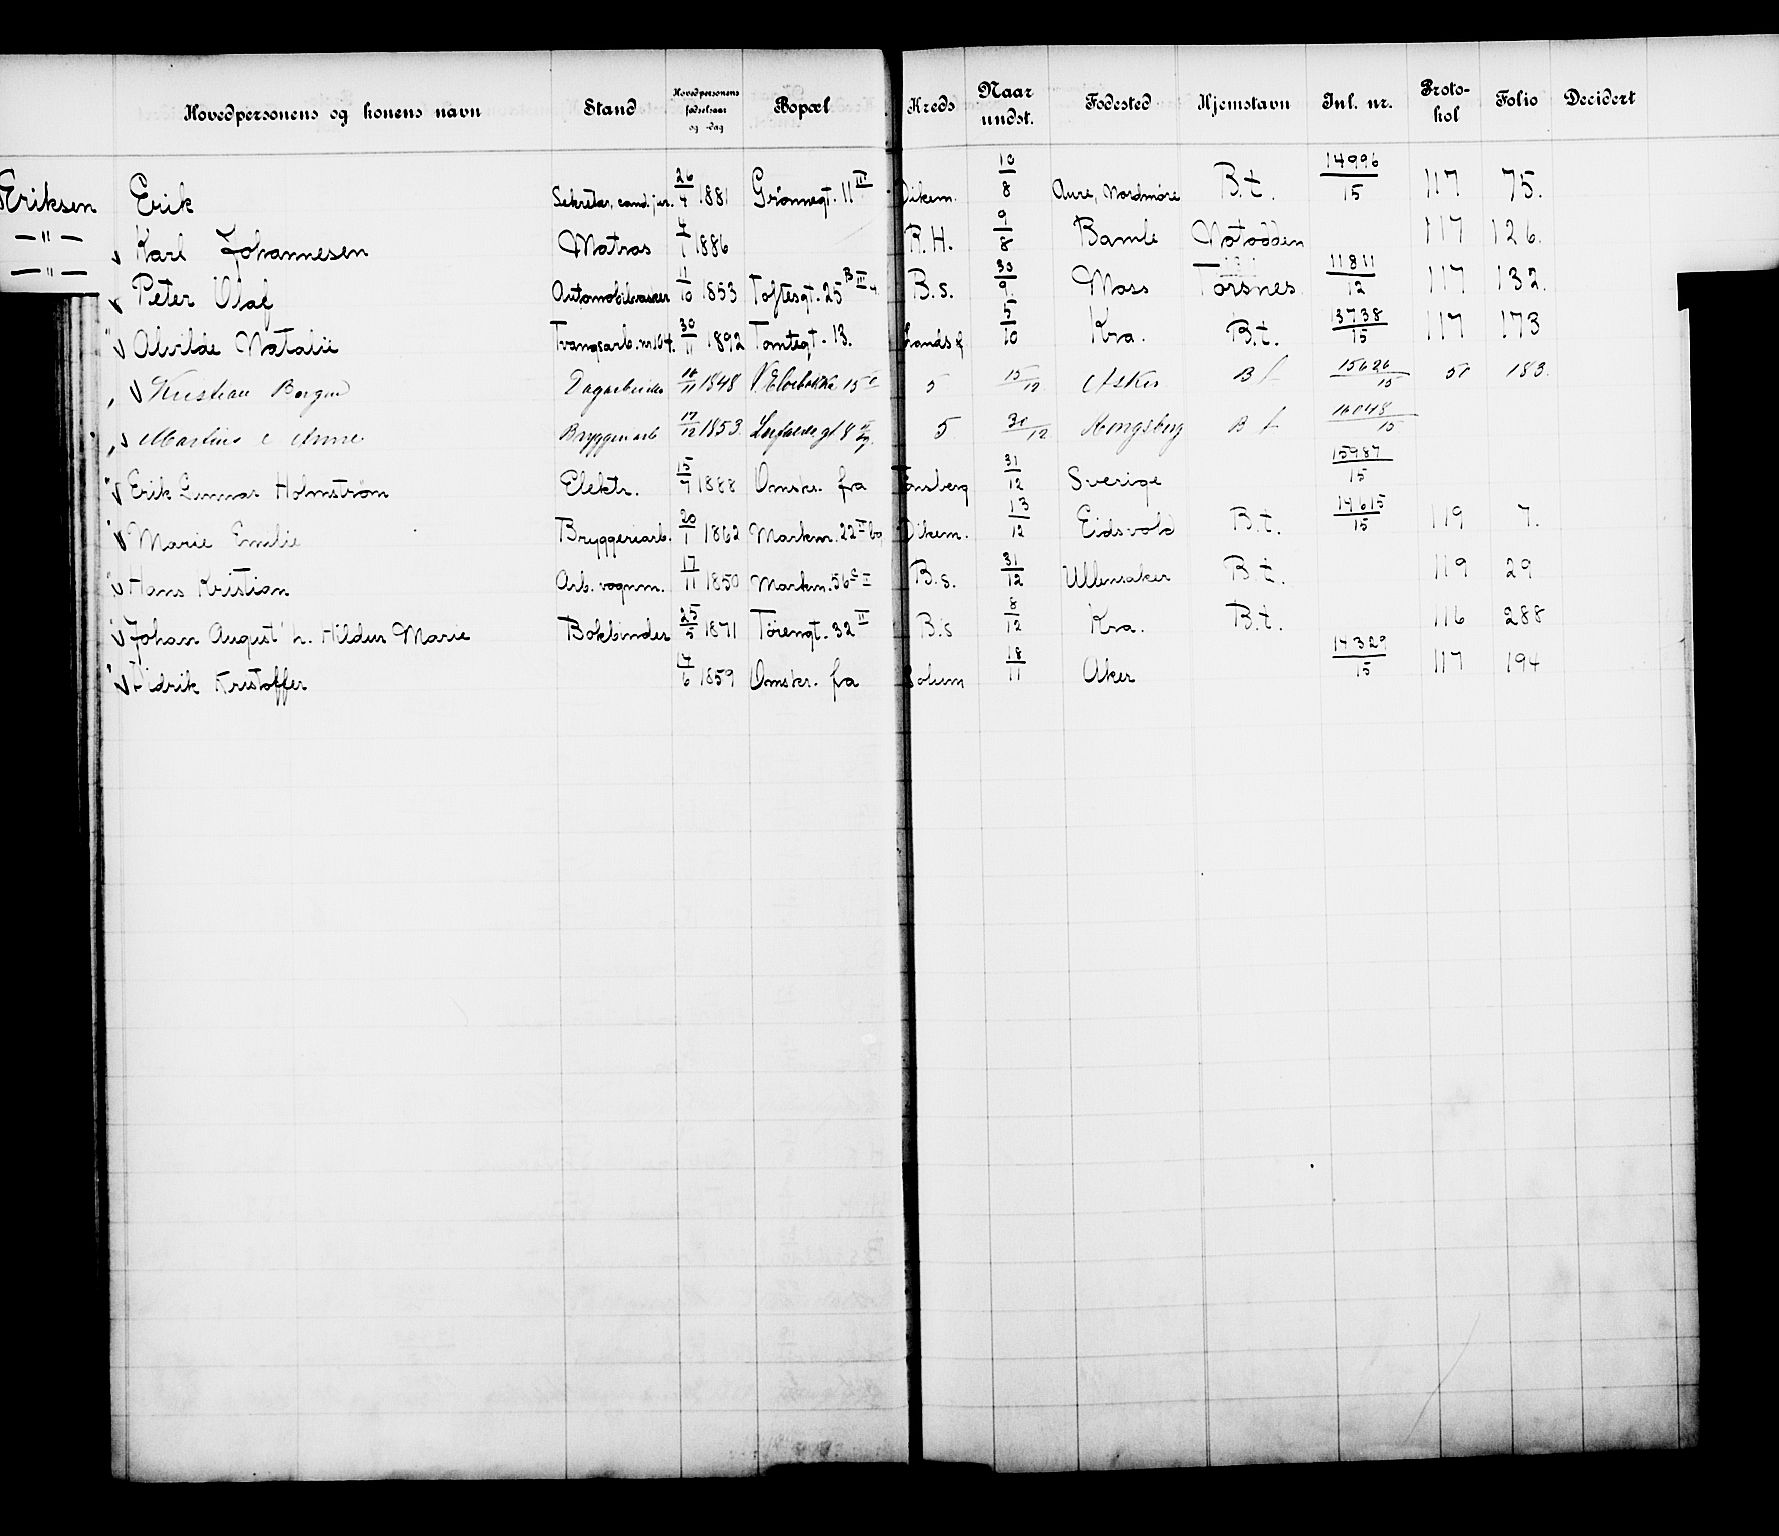 Hovedpersonens og konens navn | Stand | Hovedpersonens fødselsaar og -dag | Bopæl | Kreds | Naar undst. | Fødested | Hjemstavn | Jnl. nr. | Protokol | Folio | Decidert
Eriksen | Erik | Sekretær, cand. jur. | 26/4 1881 | Grønnegt. 11 III | Dikem. | 10/8 | Aure, Nordmøre | B.t. | 14996/15 | 117 | 75.
—"— | Karl Johannesen | Matros | 4/1 1886 | R.H. | 9/8 | Bamle | Notodden | 117 | 126.
—"— | Peter Olaf | Automobilvasker | 11/10 1853 | Toftesgt. 25 B III | B.s. | 30/9 | Moss | Torsnes | 11811/12 | 117 | 132.
" Alvilde Natalie | Tvangsarb. nr 104. | 30/11 1892 | Tomtegt. 13. | Lands f | 5/10 | Kra. | B.t. | 13738/15 | 117 | 173
" Kristian Borgen | Dagarbeider | 10/11 1848 | 15 c | 5 | 15/12 | Asker | B t | 15626/15 | 183.
" Martin Anne | Bryggeriarb | 17/12 1853. | 8 | 5 | 30/12 | Kongsberg | B t | 16048/15
" Erik Gunnar Holmstrøm | Elektr. | 15/7 1888 | Omskr. fra | Tønsberg | 31/12 | Sverige | 15987/15
" Marie Emilie | Bryggeriarb. | 20/1 1862 | Markvn. 22 II bg | Dikem. | 13/12 | Eidsvold | B.t. | 14615/15 | 119 | 7.
" Hans Kristian | Arb. vognm. | 17/11 1850 | Markvn. 56 c I | B.s. | 31/12 | Ullensaker | B.t. | 119 | 29
" Johan August h. Hildur Marie | Bokbinder | 25/5 1871 | Tørengt. 32 II | B.s | 8/12 | Kra. | B.t. | 116 | 288
" Didrik Kristoffer | 17/6 1859 | Omskr. fra | Solum | 18/11 | Aker | 14329/15 | 117 | 194